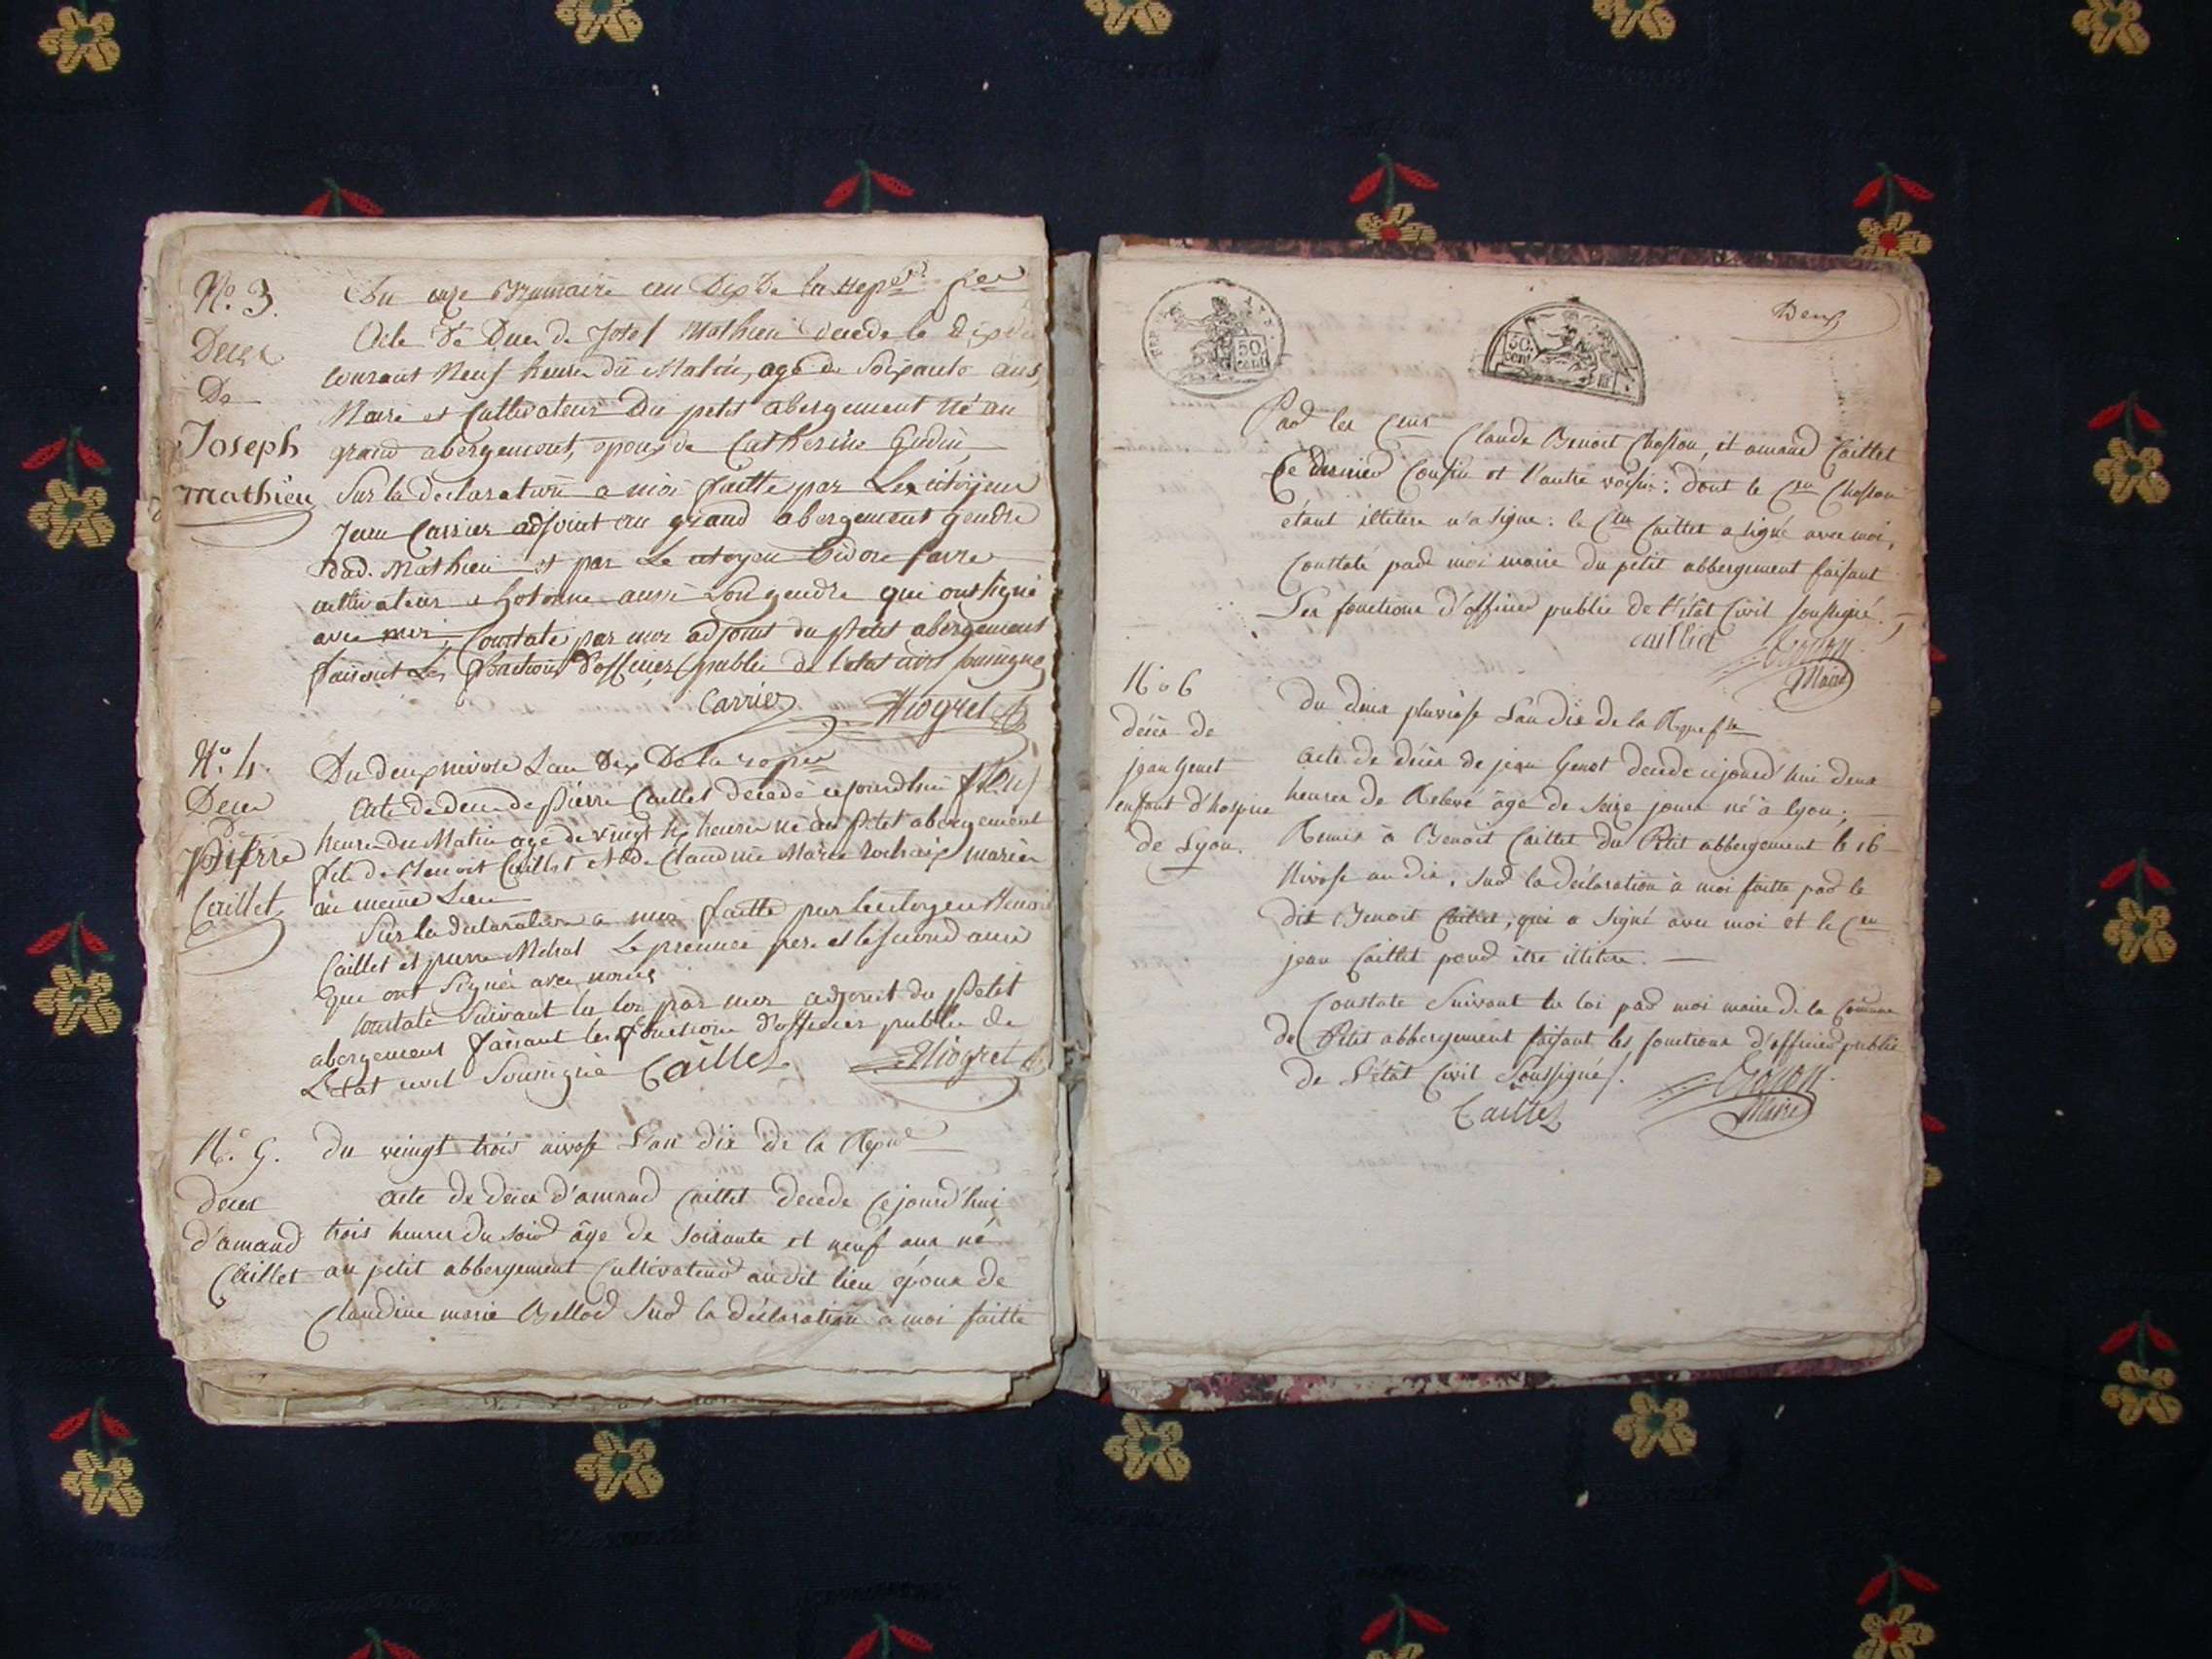 N.o 3.
Deces
De
Joseph
Mathieu
Du onze Brumaire an Dix De la Repu. fse
Acte De Deces de Josef Mathieu decede le Dix du
courant Neuf heures du Matin, agé de Soixante ans,
Maire et Cultivateur Du petit abergement né au
grand abergement, epoux de Catherine Gudin,
Sur la declaration a moi faitte par Les citoyens
Jean Carrier adjoint au grand abergement gendre
dud. Mathieu et par Le citoyen Isidore favre
cultivateur a hotonne aussi Son gendre qui ont signé
avec moi, Constaté par moi adjoint du Petit abergement
faisant Les fonctions d'officier public de l'etat civil soussigné
Carrier
N.o 4.
Deces
De
Pierre
Caillet
Du deux nivose L'an Dix De la repu
Acte de deces de Pierre Caillet decedé cejourdhui
heures du Matin agé de vingt heures né au Petit abergement
fils de Benoit Caillet et de Claudine Marie mariés
au meme Lieu
Sur la declaration a moi faitte par le citoyen Benoit
Caillet et pierre Le premier pere et le second ami
qui ont Signés avec nous
Constaté Suivant la loi par moi adjoint du Petit
abergement faisant les fonctions d'officier public de
L'Etat civil Soussigné Caillet
N.o 5.
deces
d'amand
Caillet
du veingt trois nivose L'an dix de la Repu
acte de décès d'amand Caillet decedé Cejourd'hui
trois heures du soir âgé de soixante et neuf ans né
au petit abbergement Cultivateur audit lieu époux de
Claudine marie Ballod Sur la déclaration à moi faitte
Deux
REP. FRA.
50.
cent
50.
cent
Par les Cens Claude Benoit Chosson, et amand Caillet
Ce dernier Cousin et l'autre voisin: dont le Cen Chosson
étant illitere n'a signé: le Cen Caillet a signé avec moi,
Constaté par moi maire du petit abbergement faisant
Les fonctions d'officier public de L'état Civil soussigné.
Caillet
Maire
N.o 6
décès de
jean Genet
enfant d'hospice
de Lyon.
du deux pluviose L'an dix de la Repu fse
acte de décès de jean Genet decedé cejourd'hui deux
heures de Relevé âgé de Seize jours né à Lyon;
Remis à Benoit Caillet du Petit abbergement le 16
Nivose an dix. Sur la déclaration à moi faitte par le
dit Benoit Caillet, qui a Signé avec moi et le Cen
jean Caillet pour être illitere.
Constaté Suivant la loi par moi maire de la Commune
du Petit abbergement faisant les fonctions d'officier public
de L'état Civil Soussigné.
Caillet
Maire